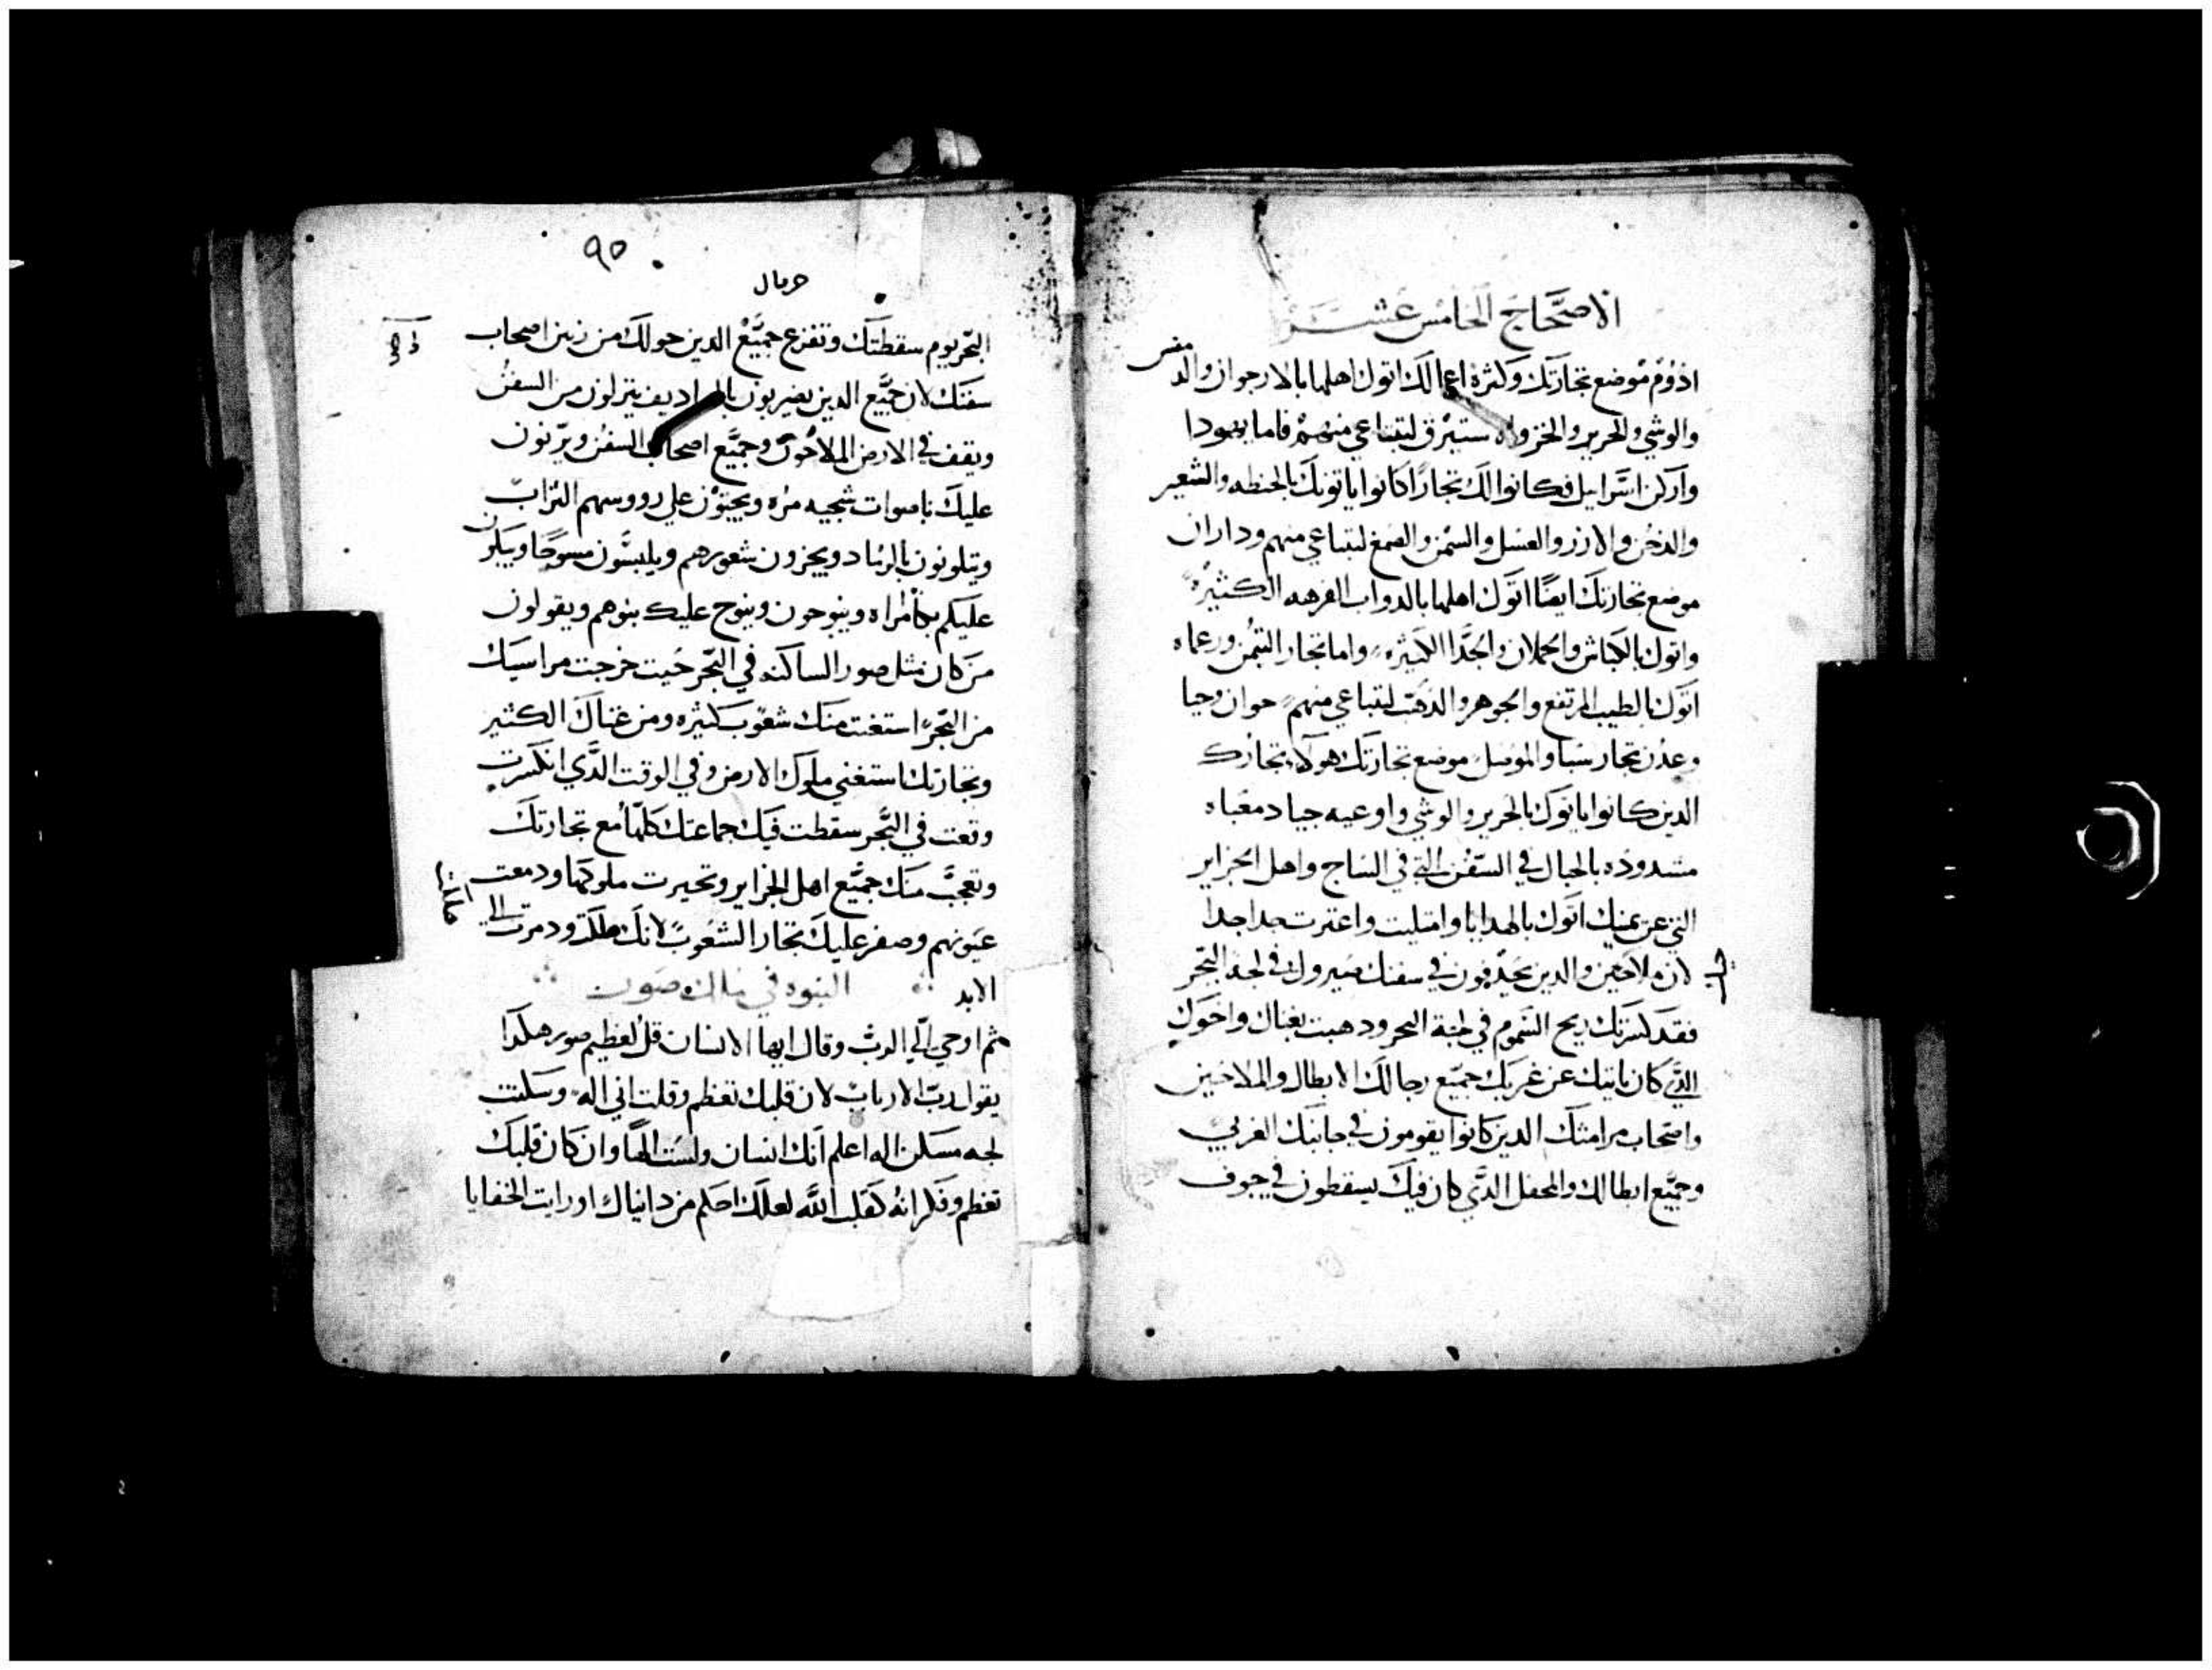 الاصحاح الخامس عشر
ادوم موضع تجارتك وكثرة اعمالك اتوك اهلها بالارجوان والدمقس
والوشي والحرير والخز واه ستبرق لتبتاعي منهم فاما يهودا
وارض اسراييل فكانوا لك تجارا كانوا ياتونك بالحنطه والشعير
والدخن والارز والعسل والسمن والصمغ لتبتاعي منهم وداران
موضع تجارتك ايضا اتوك اهلها بالدواب الفرهه الكثيره
واتوك بالكباش والحملان والجدا الكثيره واما تجار التيمن ورعماه
اتوك بالطيب المرتفع والجوهر والذهب لتبتاعي منهم حوان وحيا
وعدن تجار سبا والموصل موضع تجارتك هولا تجارك
الدين كانوا ياتوك بالحرير والوشي واوعيه جياد معباه
مشدوده بالحبال في السفن التي في الساج واهل الجزاير
التي عن يمنيك اتوك بالهدايا وامتليت واعترت جدا جدا
لان ملاحين والدين يحدفون في سفنك صيروك في لجه البحر
فقد كسرتك ريح السموم في لجة البحر ودهبت بغناك واخوك
التي كان ياتيك عن غربك جميع رجالك الابطال والملاحين
واصحاب مرامتك الدين كانوا يقومون في جانبك الغربي
وجميع ابطالك والمحفل الدي كان فيك يسقطون في جوف
٩٥
حرقيال
البحر يوم سقطتك وتفزع جميع الدين حولك من زنين اصحاب
سفنك لان جميع الدين يضربون بالمراديف ينزلون من السفن
ويقف في الارض الملاحون وجميع اصحاب السفن ويرنون
عليك باصوات شجيه مره ويحتون علي رووسهم التراب
ويتلوثون بالرماد ويجزون شعورهم ويلبسون مسوحا ويبكون
عليكم بكا مراه وينوحون وينوح عليك بنوهم ويقولون
من كان مثل صور الساكنه في البحر حيت خرجت مراسيك
من البحر استغنت منك شعوب كثيره ومن غناك الكثير
وتجارتك استغني ملوك الارض وفي الوقت الدي انكسرت
وقعت في البحر سقطت فيك جماعتك كلها مع تجارتك
وتعجب منك جميع اهل الجزاير وتحيرت ملوكها ودمعت
عيونهم وصفر عليك تجار الشعوب لانك هلكت ودمرت الي
الابد النبوه في ملك صور
ثم اوحي الي الرب وقال ايها الانسان قل لعظيم صور هكدا
يقول رب الارباب لان قلبك تعظم وقلت اني اله وسكنت
لجه مسكن اله اعلم انك انسان ولست الها وان كان قلبك
تعظم وفكر انه كقلب الله لعلك احكم من دانيال او رايت الخفايا